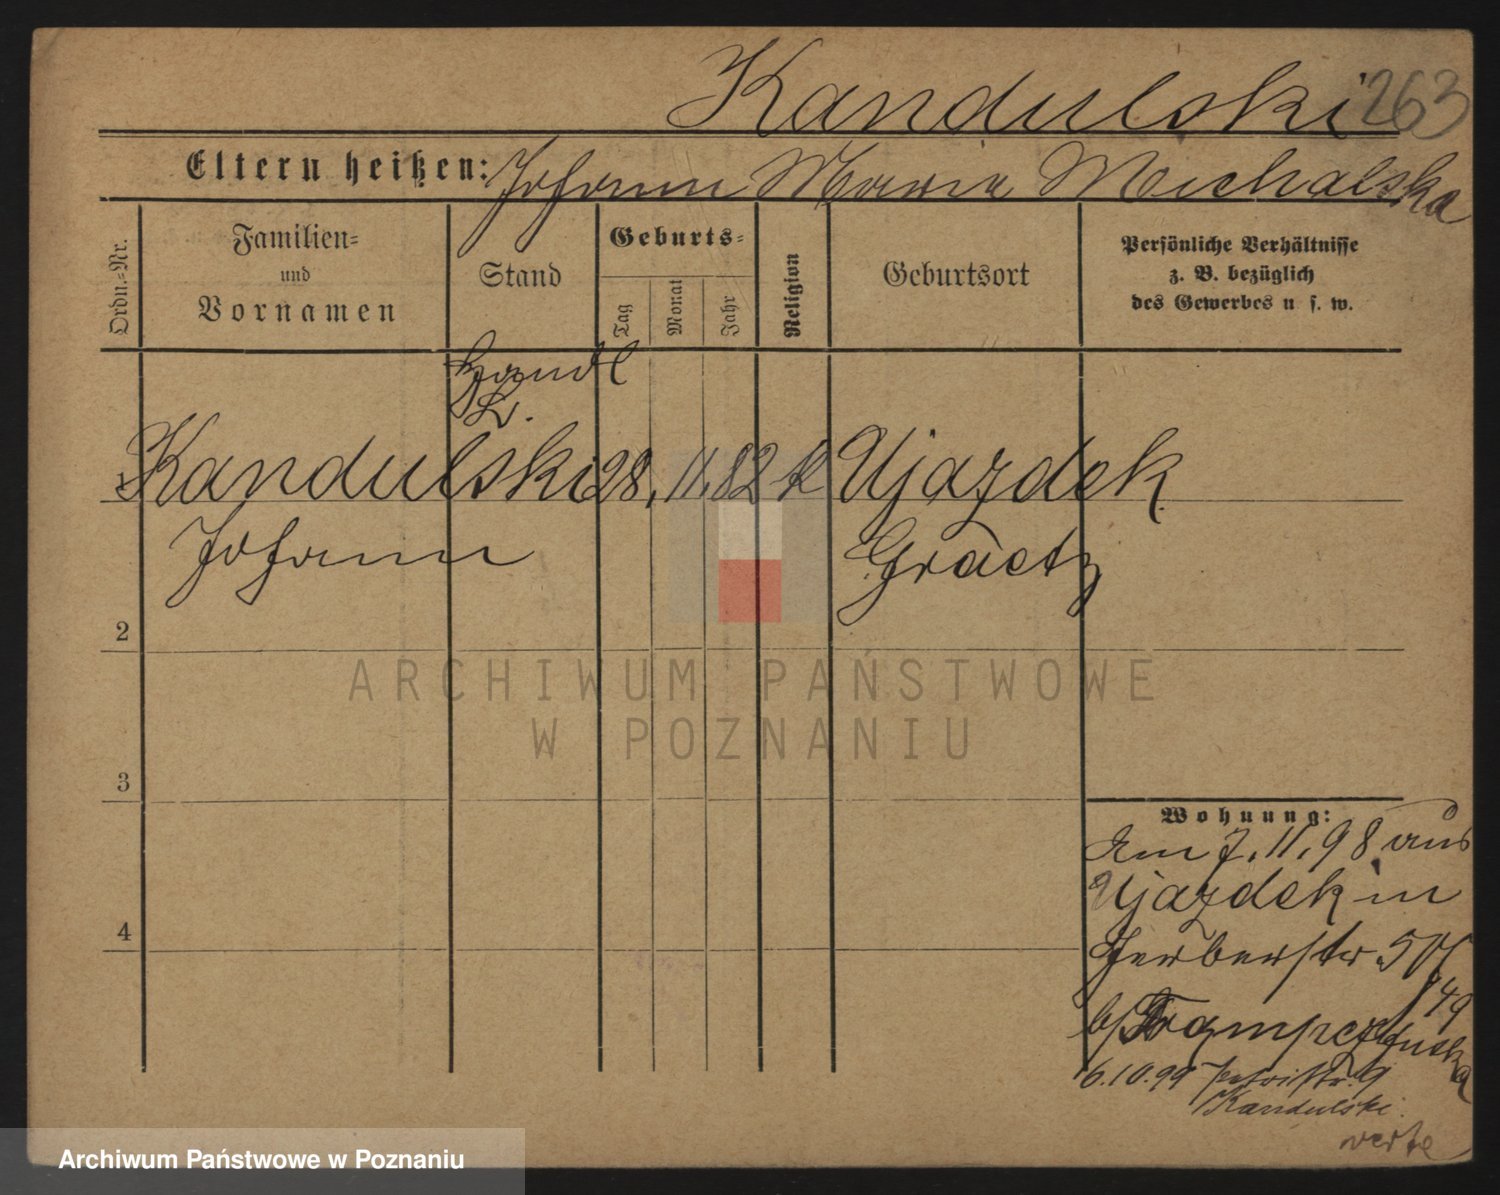 Kandulski 263
Eltern heißen: Johann Maria Michalska
Ordn.-Nr.
Familien-
und
Vornamen
Stand
Geburts-
Tag
Monat
Jahr
Religion
Geburtsort
Persönliche Verhältnisse
z. B. bezüglich
des Gewerbes u. s. w.
Handl
L.
1 Kandulski 28. 11. 82 k Ujazdek
Johann Graetz
2
3
4
Wohnung:
Am 7. 11. 98 aus
Ujazdek in
Gerberstr. 50
49
b/ Trampczynska
6.10.99 Petristr. 9
Kandulski.
ARCHIWUM PAŃSTWOWE
W POZNANIU
Archiwum Państwowe w Poznaniu